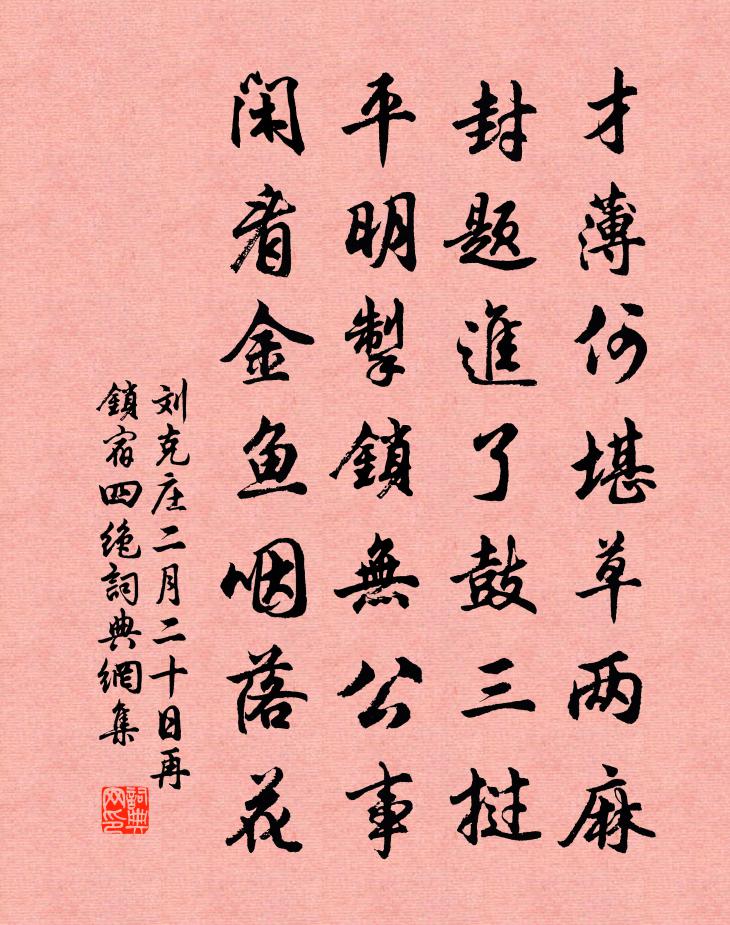 才薄何堪草两麻
封题進了鼓三挝
平明掣鎖無公事
闲看金鱼咽落花
刘克庄二月二十日再
鎖宿四绝詞典網集
詞典网印